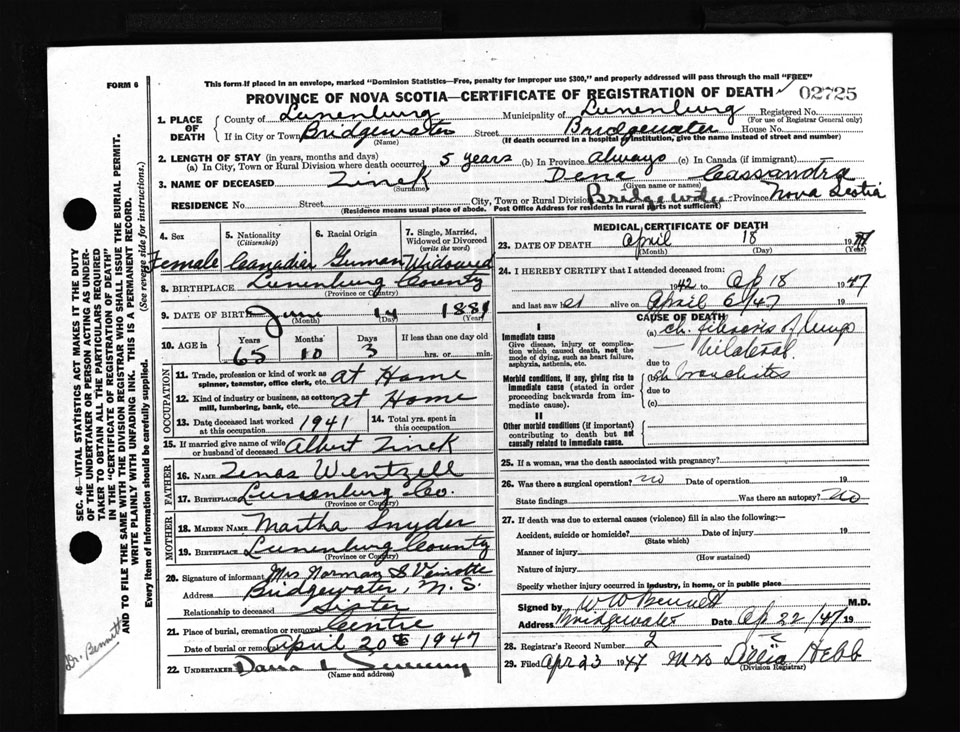 This form if placed in an envelope, marked "Dominion Statistics—Free, penalty for improper use $300," and properly addressed will pass through the mail "FREE"
FORM 6
PROVINCE OF NOVA SCOTIA—CERTIFICATE OF REGISTRATION OF DEATH 02725
1. PLACE OF DEATH
County of Lunenburg Municipality of Lunenburg Registered No.
(For use of Registrar General only)
If in City or Town Bridgewater Street Bridgewater House No.
(Name) (If death occurred in a hospital or institution, give the name instead of street and number)
2. LENGTH OF STAY (in years, months and days)
(a) In City, Town or Rural Division where death occurred 5 years (b) In Province always (c) In Canada (if immigrant)
3. NAME OF DECEASED Zinck Dena Cassandra
(Surname) (Given name or names)
RESIDENCE No. Street City, Town or Rural Division Bridgewater Province Nova Scotia
(Residence means usual place of abode. Post Office Address for residents in rural parts not sufficient)
4. Sex 5. Nationality (Citizenship) 6. Racial Origin 7. Single, Married, Widowed or Divorced (write the word)
Female Canadian German Widowed
8. BIRTHPLACE Lunenburg County
(Province or Country)
9. DATE OF BIRTH June 14 1881
(Month) (Year)
10. AGE in Years Months Days If less than one day old
65 10 3 hrs. or min.
OCCUPATION
11. Trade, profession or kind of work as spinner, teamster, office clerk, etc. at Home
12. Kind of industry or business, as cotton mill, lumbering, bank, etc. at Home
13. Date deceased last worked at this occupation 1941 14. Total yrs. spent in this occupation
15. If married give name of wife or husband of deceased Albert Zinck
FATHER
16. NAME Zenas Wentzell
17. BIRTHPLACE Lunenburg Co.
(Province or Country)
MOTHER
18. MAIDEN NAME Martha Snyder
19. BIRTHPLACE Lunenburg County
(Province or Country)
20. Signature of informant Mrs Norman S Veinotte
Address Bridgewater, N.S.
Relationship to deceased Sister
21. Place of burial, cremation or removal Centre
Date of burial or removal April 20th 1947
22. UNDERTAKER Dana L Sweeny
(Name and address)
MEDICAL CERTIFICATE OF DEATH
23. DATE OF DEATH April 18 1947
(Month) (Day) (Year)
24. I HEREBY CERTIFY that I attended deceased from:
1942 to Ap 18 1947
and last saw alive on April 6/47 19
CAUSE OF DEATH
I
Immediate cause
Give disease, injury or complication which caused death, not the mode of dying, such as heart failure, asphyxia, asthenia, etc.
(a) Ch. fibrosis of lungs
— bilateral
due to
Morbid conditions, if any, giving rise to immediate cause (stated in order proceeding backwards from immediate cause).
(b) Ch bronchitis
due to
(c)
II
Other morbid conditions (if important) contributing to death but not causally related to immediate cause.
25. If a woman, was the death associated with pregnancy?
26. Was there a surgical operation? no Date of operation 19
State findings Was there an autopsy? No
27. If death was due to external causes (violence) fill in also the following:—
Accident, suicide or homicide? Date of injury 19
(State which)
Manner of injury
(How sustained)
Nature of injury
Specify whether injury occurred in industry, in home, or in public place
Signed by W W Bennett M.D.
Address Bridgewater Date Ap 22/47 19
28. Registrar's Record Number 2
29. Filed Apr 23 1947 Mrs Lillia Hebb
(Division Registrar)
SEC. 46—VITAL STATISTICS ACT MAKES IT THE DUTY
OF THE UNDERTAKER OR PERSON ACTING AS UNDERTAKER TO OBTAIN ALL THE PARTICULARS REQUIRED
IN THE "CERTIFICATE OF REGISTRATION OF DEATH"
AND TO FILE THE SAME WITH THE DIVISION REGISTRAR WHO SHALL ISSUE THE BURIAL PERMIT.
WRITE PLAINLY WITH UNFADING INK. THIS IS A PERMANENT RECORD.
Every item of information should be carefully supplied. (See reverse side for instructions.)
Dr. Bennett